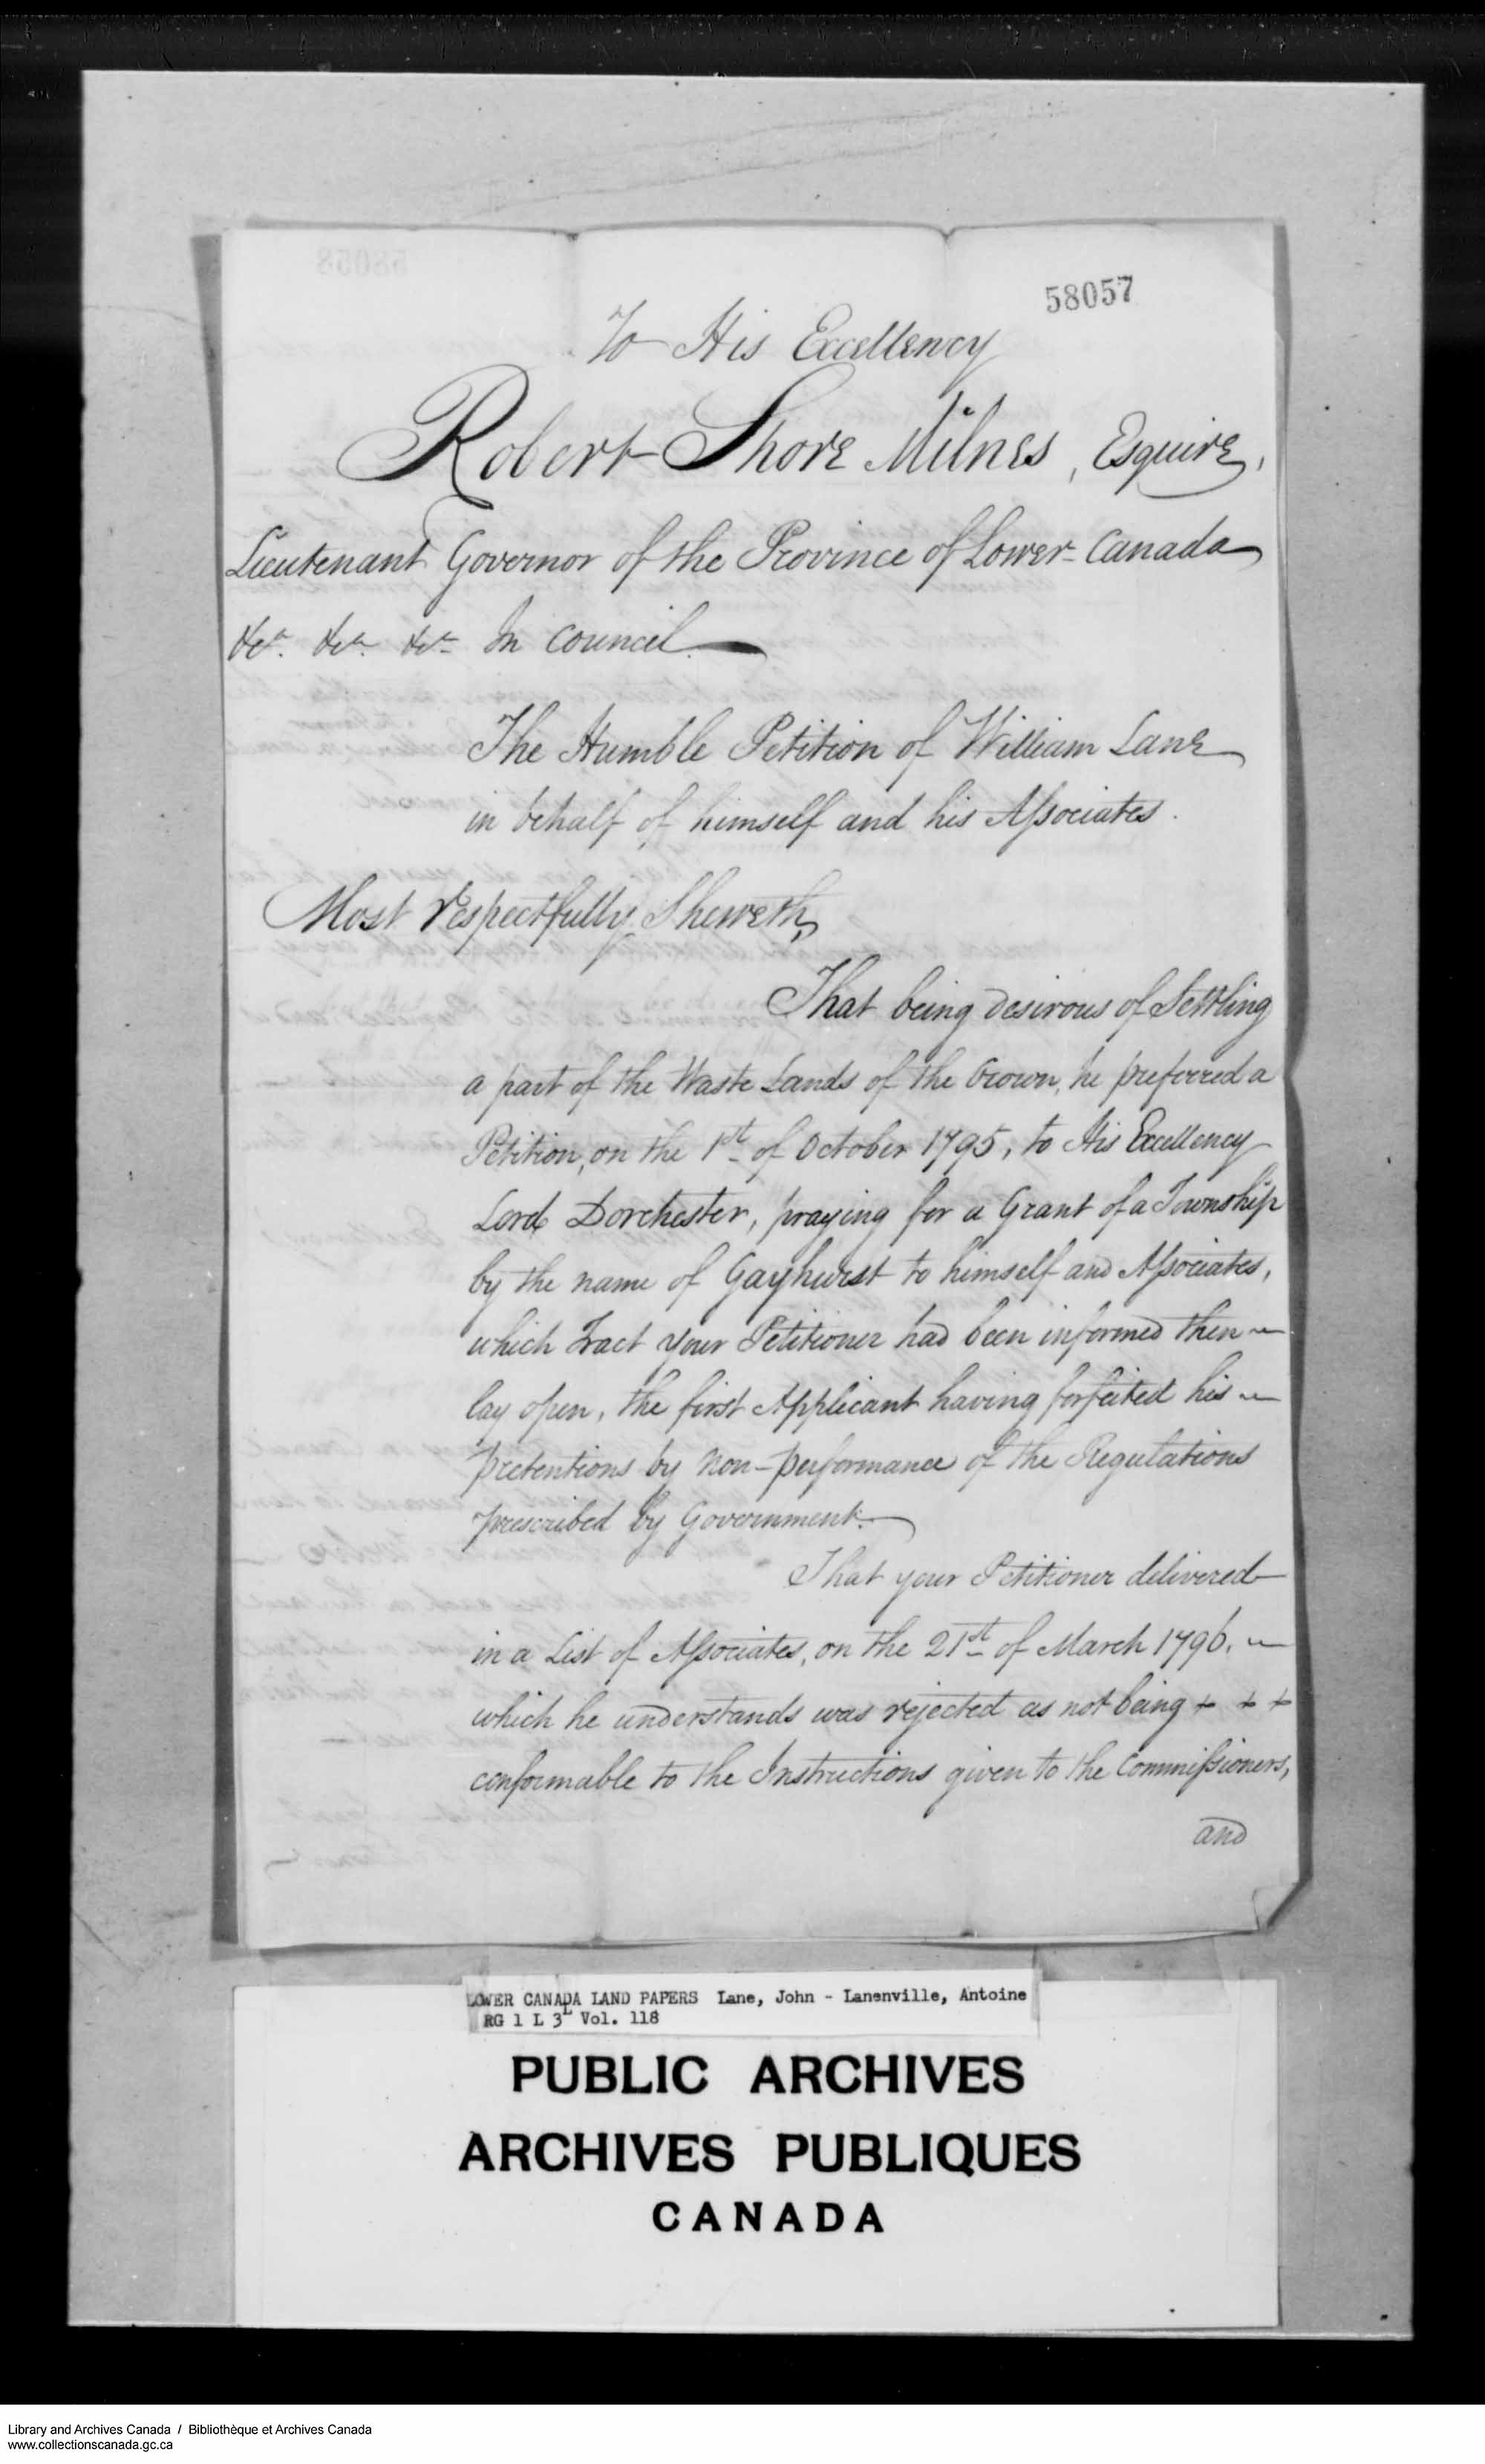 58057
To His Excellency
Robert Shore Milnes, Esquire,
Lieutenant Governor of the Province of Lower-Canada
&ca. &ca. &ca. In Council.
The Humble Petition of William Lane
in behalf of himself and his Associates.
Most respectfully Sheweth,
That being desirous of Settling
a part of the Waste Lands of the Crown, he preferred a
Petition, on the 1st of October 1795, to His Excellency
Lord Dorchester, praying for a Grant of a Township
by the name of Gayhurst to himself and Associates,
which Tract your Petitioner had been informed then ~
lay open, the first Applicant having forfeited his ~
pretentions by non-performance of the Regulations
prescribed by Government.
That your Petitioner delivered
in a List of Associates, on the 21st of March 1796. ~
which he understands was rejected as not being + + +
conformable to the Instructions given to the Commissioners,
and
LOWER CANADA LAND PAPERS Lane, John - Lanenville, Antoine
RG 1 L 3L Vol. 118
PUBLIC ARCHIVES
ARCHIVES PUBLIQUES
CANADA
Library and Archives Canada / Bibliothèque et Archives Canada
www.collectionscanada.gc.ca